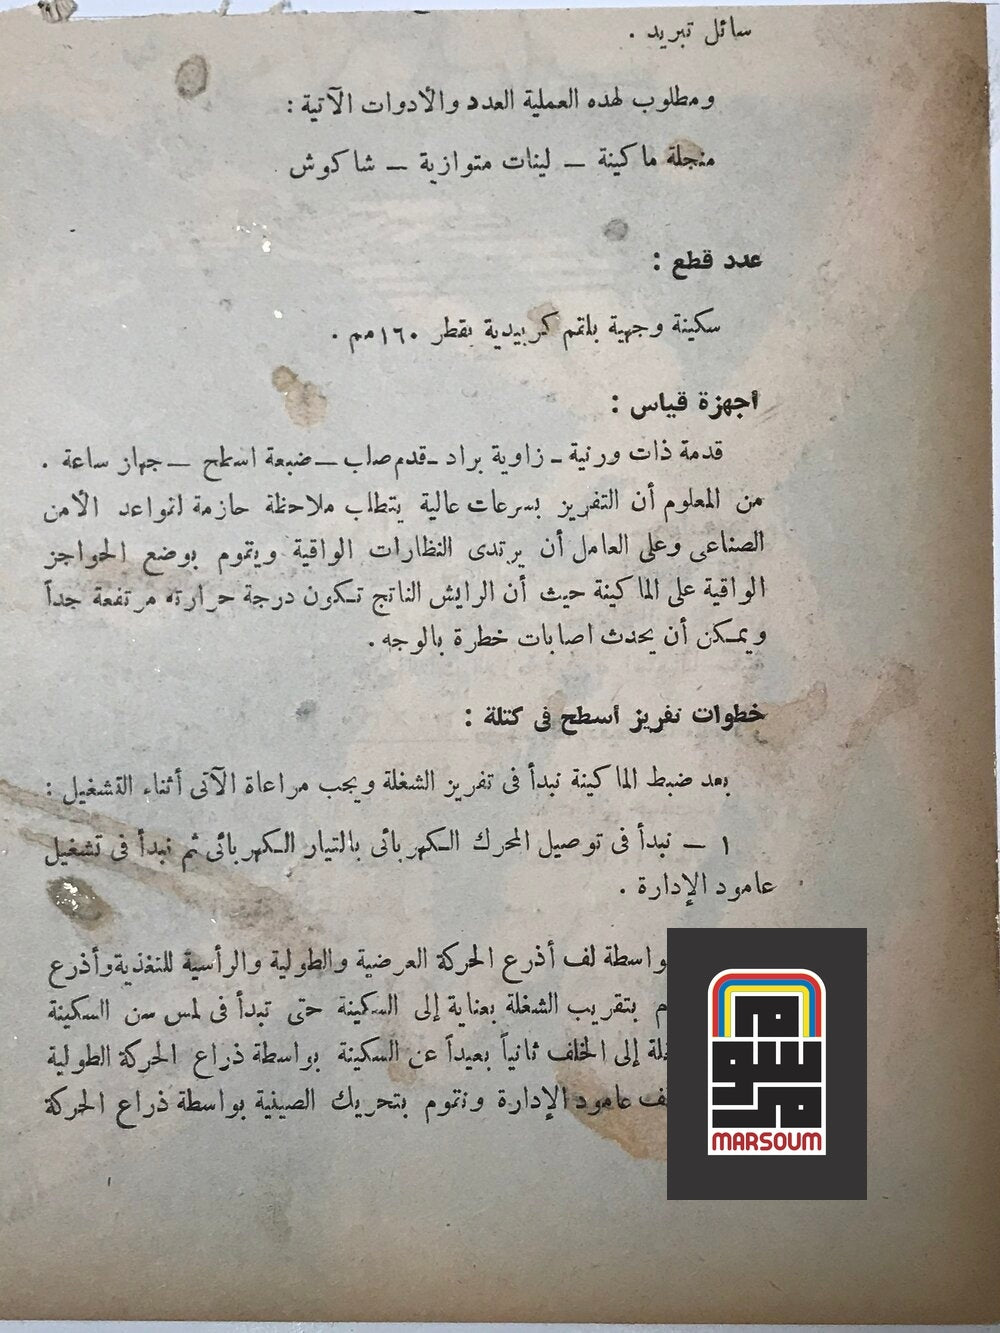 سائل تبريد .
ومطلوب لهذه العملية العدد والأدوات الآتية :
منجلة ماكينة — لينات متوازية — شاكوش
عدد قطع :
سكينة وجهية بلقم كربيدية بقطر ١٦٠مم .
أجهزة قياس :
قدمة ذات ورنية ـ زاوية براد ـ قدم صلب — ضبعة اسطح — جهاز ساعة .
من المعلوم أن التفريز بسرعات عالية يتطلب ملاحظة حازمة لقواعد الأمن
الصناعى وعلى العامل أن يرتدى النظارات الواقية ويقوم بوضع الحواجز
الواقية على الماكينة حيث أن الرايش الناتج تكون درجة حرارته مرتفعة جداً
ويمكن أن يحدث اصابات خطرة بالوجه .
خطوات تفريز أسطح فى كتلة :
بعد ضبط الماكينة نبدأ فى تفريز الشغلة ويجب مراعاة الآتى أثناء التشغيل :
١ — نبدأ فى توصيل المحرك الكهربائى بالتيار الكهربائى ثم نبدأ فى تشغيل
عامود الإدارة .
بواسطة لف أذرع الحركة العرضية والطولية والرأسية للتغذية وأذرع
بتقريب الشغلة بعناية إلى السكينة حتى تبدأ فى لمس سن السكينة
إلى الخلف ثانياً بعيداً عن السكينة بواسطة ذراع الحركة الطولية
عامود الإدارة ونقوم بتحريك الصينية بواسطة ذراع الحركة
مرسوم
MARSOUM